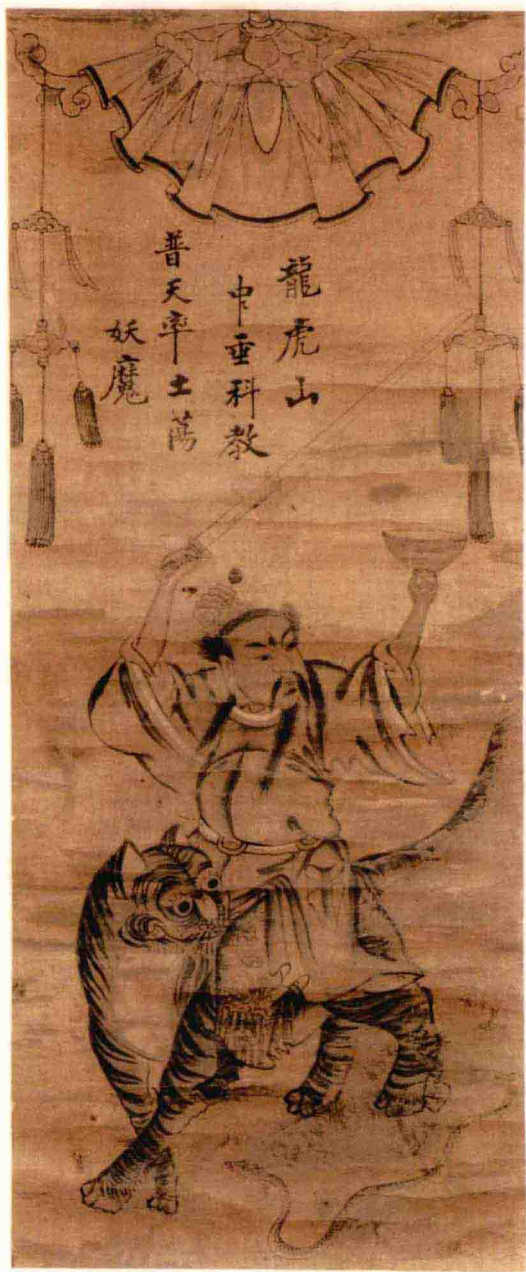 龍虎山
中垂科教
普天率土蕩
妖魔